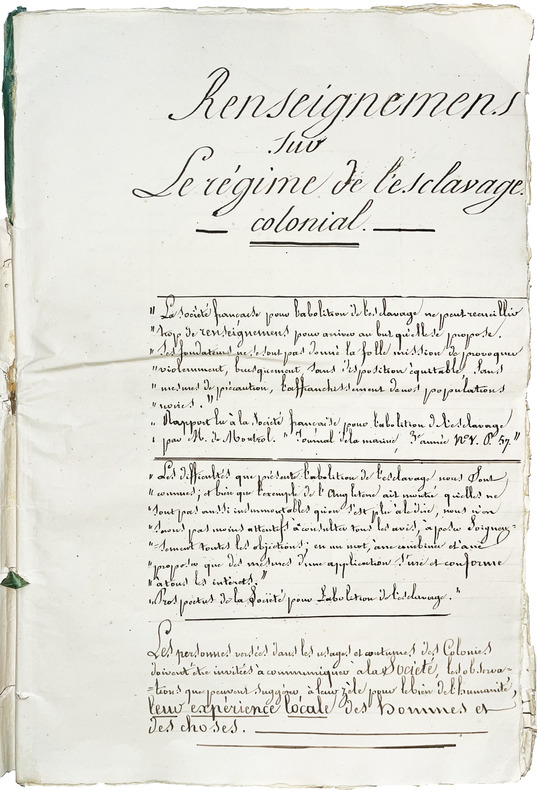 Renseignemens
sur
Le régime de l'esclavage
colonial.
" La société française pour l'abolition de l'esclavage ne peut recueillir
" trop de renseignemens pour arriver au but qu'elle se propose.
" Ses fondateurs ne se sont pas donné la folle mission de provoquer
" violemment, brusquement, sans disposition équitable, sans
" mesures de précaution, l'affranchissement de nos populations
" noires. "
" Rapport lu à la Société française pour l'abolition de l'esclavage
" par M. de Montrol. " Journal de la marine, 3e année No V. P. 57. "
" Les difficultés que présente l'abolition de l'esclavage nous sont
" connues; et bien que l'exemple de l'Angleterre ait montré qu'elles ne
" sont pas aussi insurmontables qu'on s'est plu à le dire, nous n'en
" serons pas moins attentifs à consulter tous les avis, à peser soigneu-
" sement toutes les objections; en un mot, à ne combiner et à ne
" proposer que des mesures d'une application sûre et conforme
" à tous les intérêts. "
" Prospectus de la Société pour l'abolition de l'esclavage. "
Les personnes versées dans les usages et coutumes des Colonies
doivent être invitées à communiquer à la Société, les observa-
=tions que peuvent suggérer à leur zèle pour le bien de l'humanité,
leur expérience locale des hommes et
des choses.